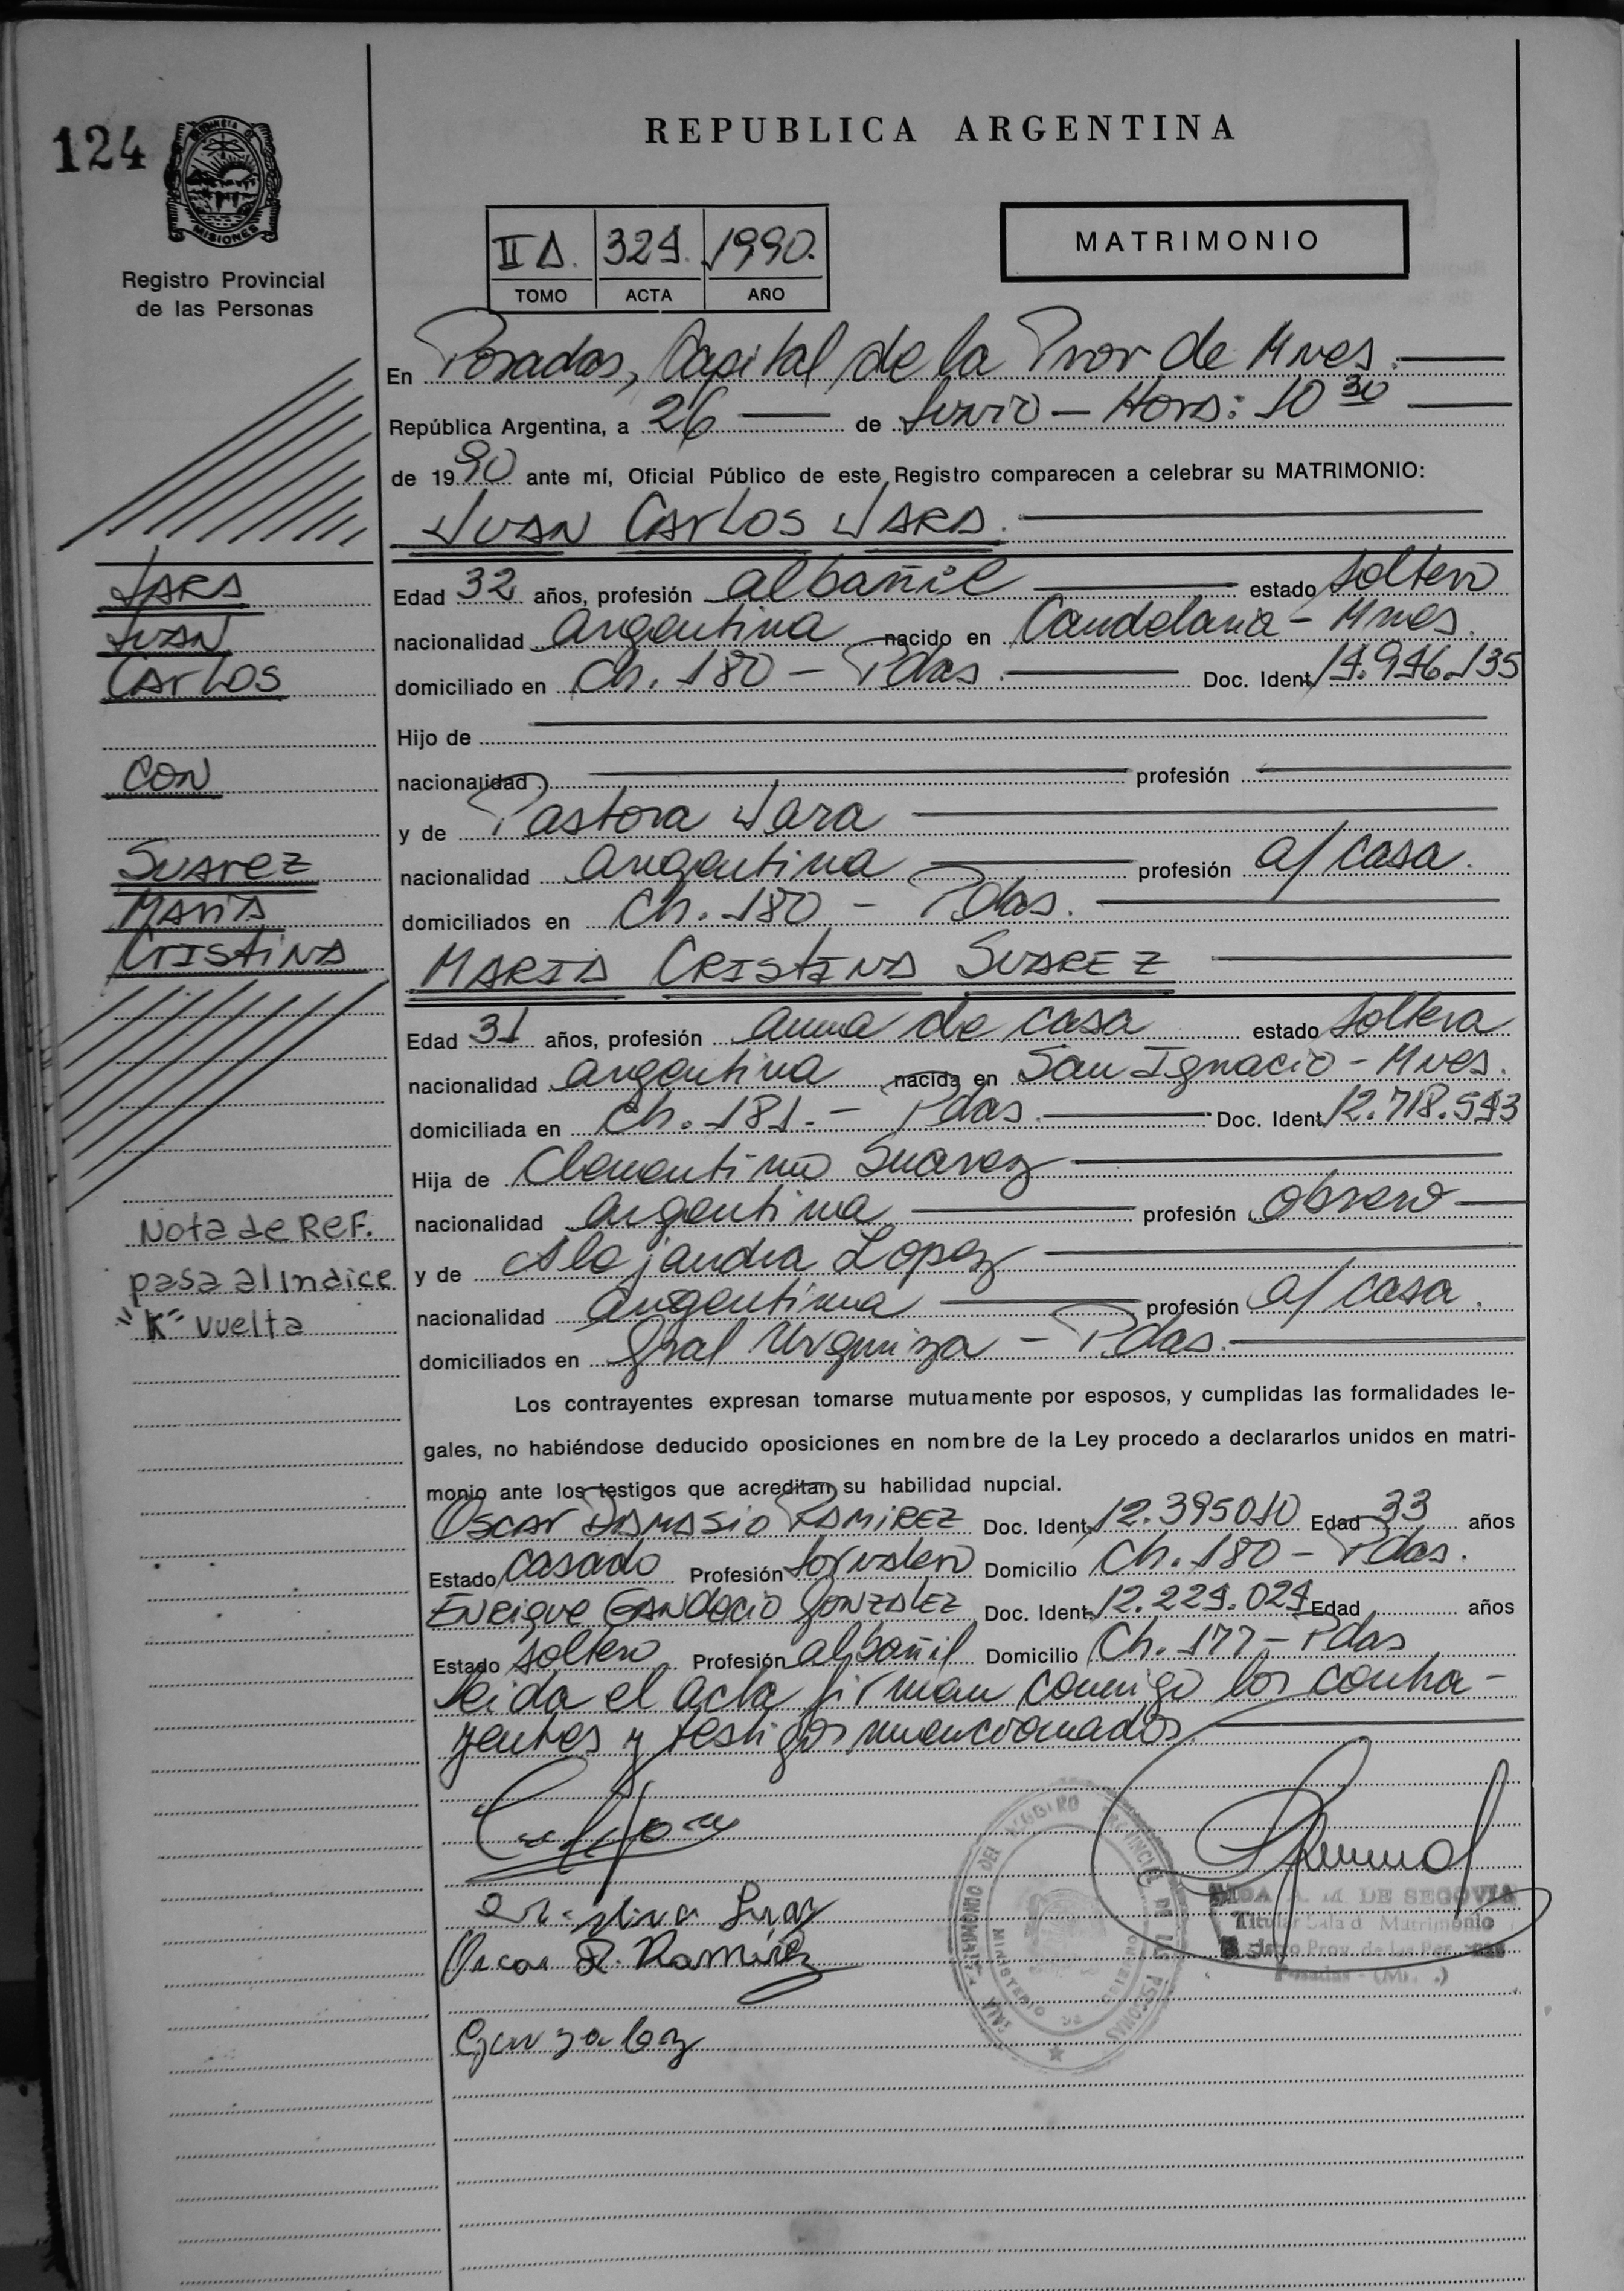 124
PROVINCIA DE
MISIONES
Registro Provincial
de las Personas
REPUBLICA ARGENTINA
II A. 329. 1990.
TOMO ACTA AÑO
MATRIMONIO
En Posadas, Capital de la Prov de Mnes.
República Argentina, a 26 de Junio - Hora: 10 30
de 1990 ante mí, Oficial Público de este Registro comparecen a celebrar su MATRIMONIO:
JUAN CARLOS JARA.
Edad 32 años, profesión albañil estado soltero
nacionalidad argentina nacido en Candelaria - Mnes.
domiciliado en Ch. 180 - Pdas. Doc. Ident. 14.946.135
Hijo de
nacionalidad profesión
y de Pastora Jara
nacionalidad argentina profesión a/ casa.
domiciliados en Ch. 180 - Pdas.
MARIA CRISTINA SUAREZ
Edad 31 años, profesión ama de casa estado soltera
nacionalidad argentina nacida en San Ignacio - Mnes.
domiciliada en Ch. 181. - Pdas. Doc. Ident. 12.718.543
Hija de Clementino Suarez
nacionalidad argentina profesión obrero
y de Alejandra Lopez
nacionalidad argentina profesión a/ casa.
domiciliados en Gral Urquiza - Pdas.
Los contrayentes expresan tomarse mutuamente por esposos, y cumplidas las formalidades le-
gales, no habiéndose deducido oposiciones en nombre de la Ley procedo a declararlos unidos en matri-
monio ante los testigos que acreditan su habilidad nupcial.
OSCAR DAMASIO RAMIREZ Doc. Ident. 12.395010 Edad 33 años
Estado casado Profesión Jornalero Domicilio Ch. 180 - Pdas.
ENRIQUE GONZALEZ Doc. Ident. 12.229.029 Edad años
Estado soltero Profesión albañil Domicilio Ch. 177 - Pdas
Leida el acta firman conmigo los contra-
yentes y testigos mencionados.
JARA
JUAN
CARLOS
CON
SUAREZ
MARIA
CRISTINA
Nota de REF.
pasa al Indice
"K" vuelta
Oscar D. Ramirez
Gonzalez
SALA MATRIMONIO DEL REGISTRO PROVINCIAL DE LAS PERSONAS
MINISTERIO DE
A. M. DE SEGOVIA
Titular Sala d Matrimonio
Prov. de las Per
Posadas - (Mi .)